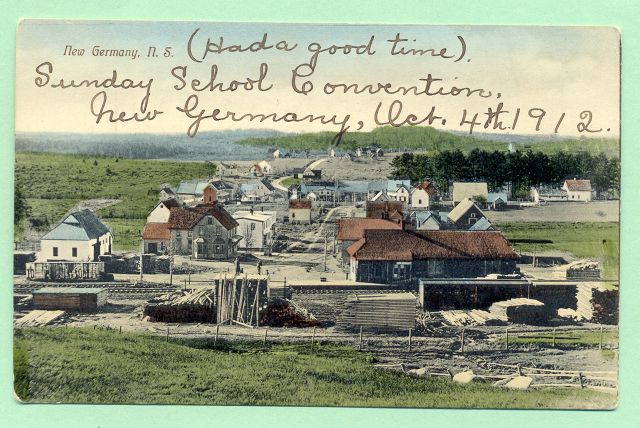 New Germany, N. S. (Had a good time).
Sunday School Convention,
New Germany, Oct. 4th. 1912.